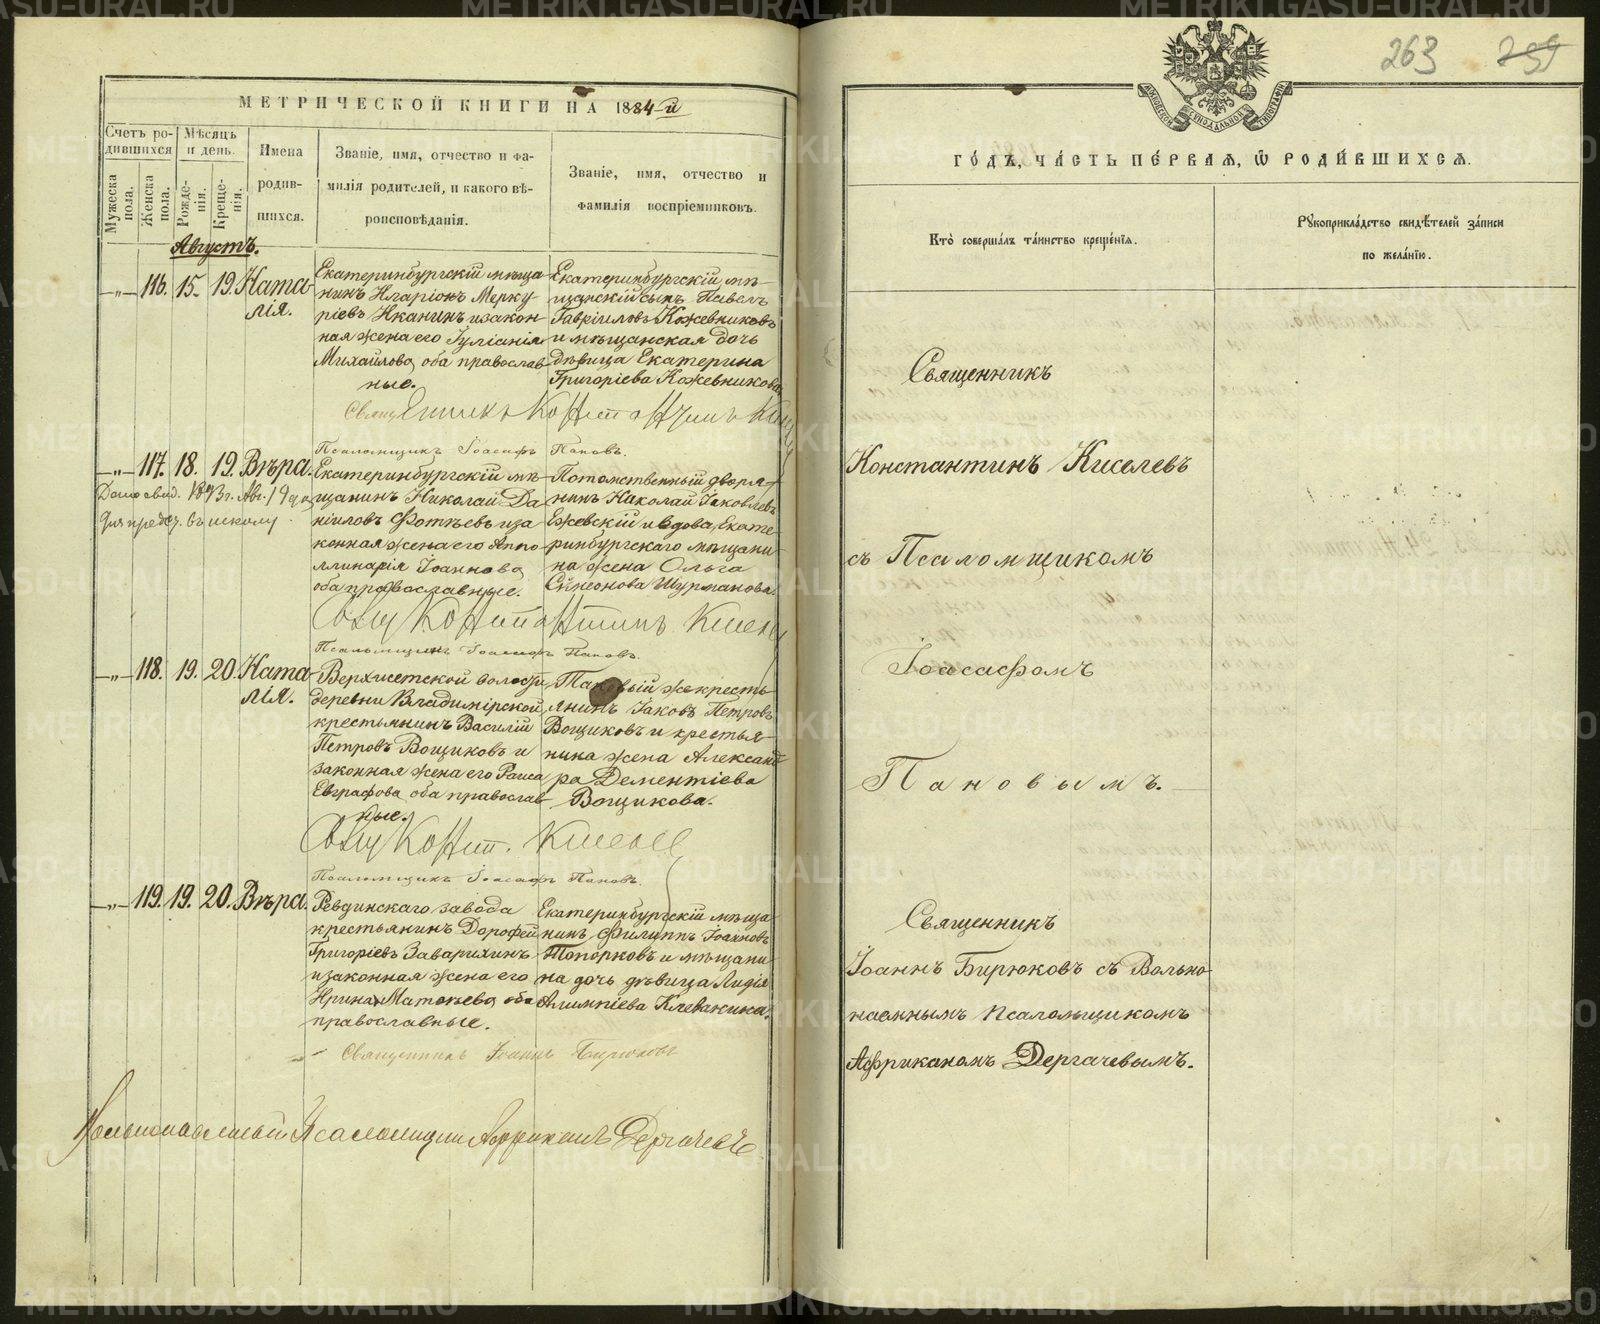 МЕТРИЧЕСКОЙ КНИГИ НА 1884 й
Счетъ ро-
дившихся
Мѣсяцъ
и день.
Мужеска
пола.
Женска
пола.
Рожде-
нія.
Креще-
нія.
Имена
родив-
шихся.
Званіе, имя, отчество и фа-
милія родителей, и какого вѣ-
роисповѣданія.
Званіе, имя, отчество и
фамилія воспріемниковъ.
Августъ.
-„- 116. 15. 19. Ната-
лія.
Екатеринбургскій мѣща
нинъ Иларіонъ Мерку-
ріевъ Иканинъ и закон-
ная жена его Іуліанія
Михайлова, оба православ-
ные.
Екатеринбургскій мѣ-
щанскій сынъ Павелъ
Гавріиловъ Кожевниковъ
и мѣщанская дочь
дѣвица Екатерина
Григоріева Кожевникова
Священникъ Константинъ
Псаломщикъ Іоасафъ Пановъ.
-„- 117. 18. 19. Вѣра.
Екатеринбургскій мѣ-
щанинъ Николай Да-
ніиловъ Фотѣевъ и за
конная жена его Аппо-
ллинарія Іоаннова
оба православные.
Потомственный дворя-
нинъ Николай Іаковлевъ
Ежевскій и вдова, Екате-
ринбургскаго мѣщани-
на жена Ольга
Симеонова Шурманова.
для предс. въ школу.
Свящ Константинъ
Псаломщикъ Іоасафъ Пановъ.
-„- 118. 19. 20. Ната-
лія.
Верхисетской волости,
деревни Владимірской,
крестьянинъ Василій
Петровъ Вощиковъ и
законная жена его Раиса
Евграфова, оба православ-
ные.
Таковый же кресть-
янинъ Іаковъ Петровъ
Вощиковъ и крестья-
нина жена Александ
ра Дементіева
Вощикова.
Свящ Конст.
Псаломщикъ Іоасафъ Пановъ.
-„- 119. 19. 20. Вѣра.
Ревдинскаго завода
крестьянинъ Дорофей
Григоріевъ Заварихинъ
и законная жена его
Ирина Матѳѣева, оба
православные.
Екатеринбургскій мѣща
нинъ Филиппъ Іоанновъ
Топорковъ и мѣщани-
на дочь дѣвица Лидія
Алимпіева Клевакина.
Священникъ Іоаннъ Бирюковъ
Вольнонаемный Псаломщик Африканъ Дергачевъ
263
259
МОСКОВСКОЙ СѴНОДАЛЬНОЙ ТИПОГРАФІИ
ГО́ДЪ, ЧА́СТЬ ПЕ́РВАЯ, Ѡ РОДИ́ВШИХСЯ.
Кто̀ соверша́лъ та́инство креще́нія.
Рукоприкла́дство свидѣ́телей за́писи
по жела́нію.
Священникъ
Константинъ Киселевъ
съ Псаломщикомъ
Іоасафомъ
Пановымъ.
Священникъ
Іоаннъ Бирюковъ съ Вольно-
наемнымъ псаломщикомъ
Африканомъ Дергачевымъ.
METRIKI.GASO-URAL.RU